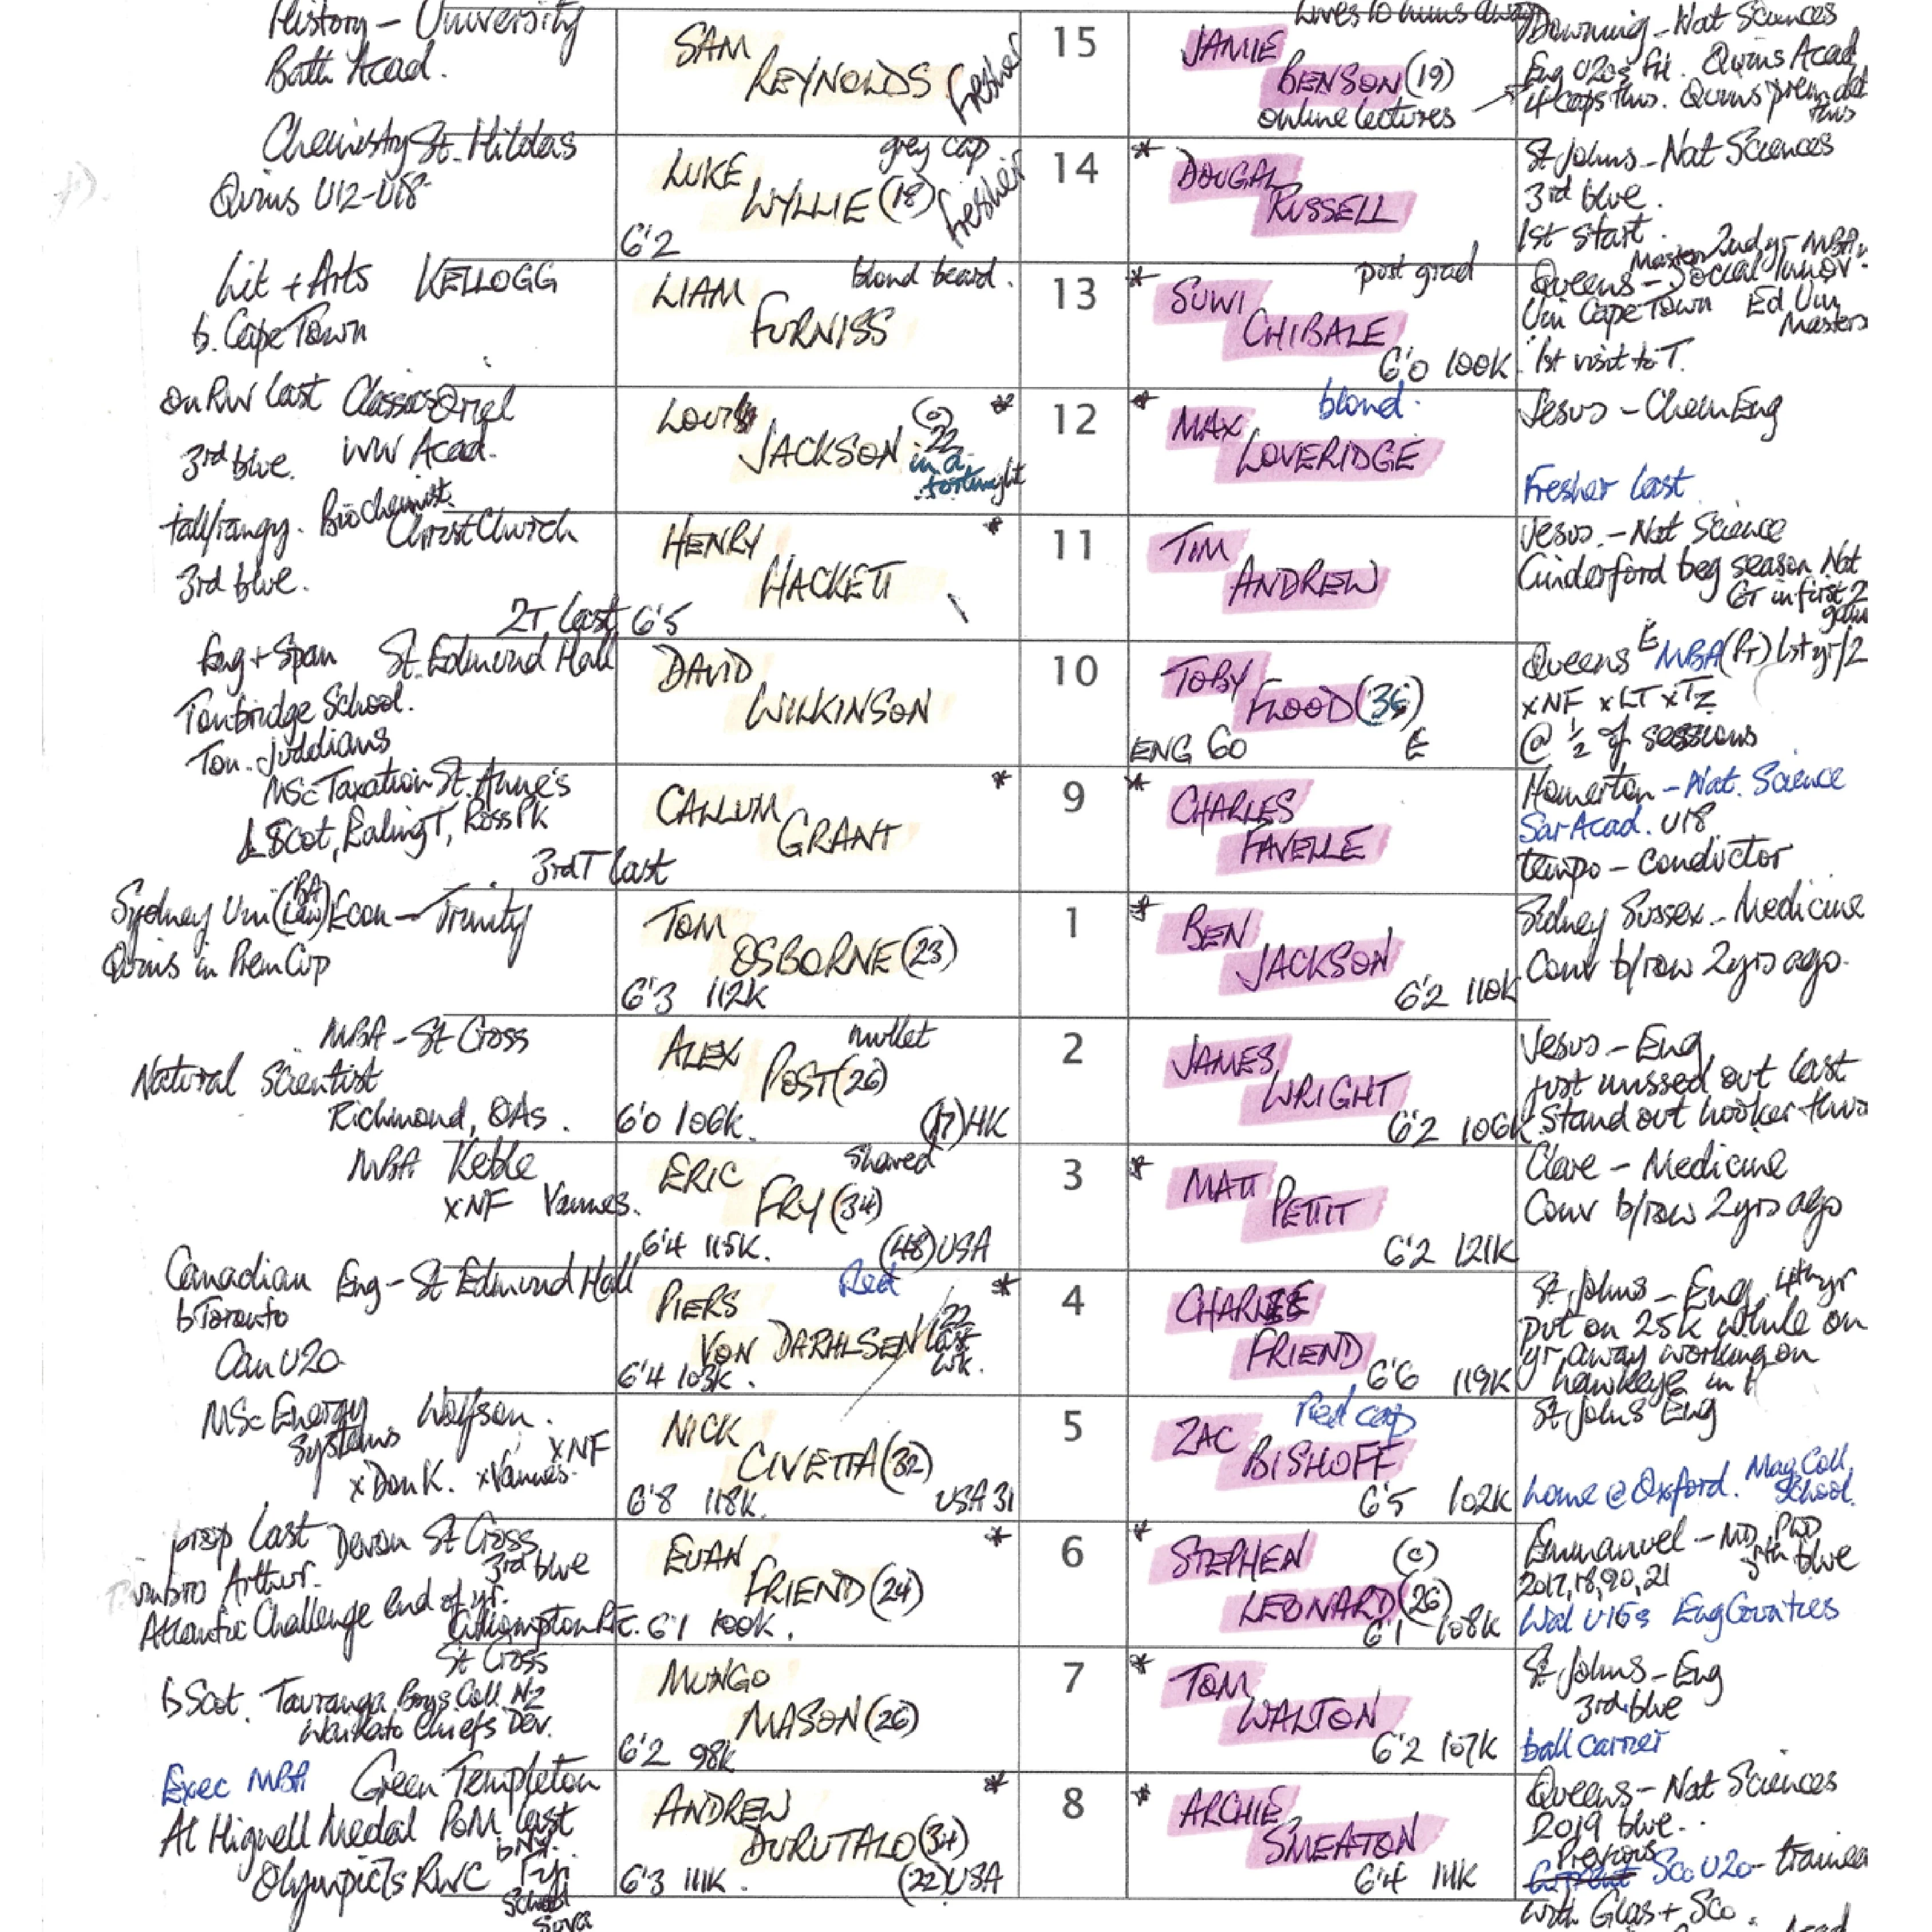 History – University
Bath Acad.
SAM
REYNOLDS
fresher
15
JAMIE
BENSON (19)
online lectures
Lives 10 mins away
Downing – Nat Sciences
Eng U20s FH. Quins Acad
4 caps this. Quins prem deb
this
Chemistry St. Hildas
Quins U12-U18
LUKE
WYLLIE (18)
grey cap
fresher
6'2
14
* DOUGAL
RUSSELL
St Johns – Nat Sciences
3rd blue.
1st start.
Lit + Arts KELLOGG
b. Cape Town
blond beard.
LIAM
FURNISS
13
* SUWI
CHIBALE
post grad
6'0 100K
Master 2nd yr MBA
Queens – Social Innov.
Uni Cape Town Ed Uni
Masters
1st visit to T.
on RW last Classics Oriel
3rd blue. WW Acad.
LOUIS
JACKSON
(c) *
22
in a
fortnight
12
* MAX
LOVERIDGE
blond.
Jesus – Chem Eng
Fresher last
tall/rangy. Biochemist
Christ Church
3rd blue.
2T last
HENRY *
HACKETT
6'5
11
TIM
ANDREW
Jesus – Nat Science
Cinderford beg season Nat
GT in first 2
games
Eng + Span St. Edmund Hall
Tonbridge School.
Ton. Juddians
DAVID
WILKINSON
10
TOBY
FLOOD (36)
ENG 60 E
Queens E MBA (PT) 1st yr/2
xNF xLT xTz
@ ½ of sessions
MSc Taxation St. Anne's
L Scot, Ealing T, Ross Pk
3rd T last
CALLUM *
GRANT
9
* CHARLES
FAVELLE
Homerton – Nat. Science
Sar Acad. U18
tempo – conductor
Sydney Uni (BA Law) Econ – Trinity
Quins in Prem Cup
TOM
OSBORNE (23)
6'3 112K
1
* BEN
JACKSON
6'2 110K
Sidney Sussex – Medicine
Conv b/row 2yrs ago
MBA – St Cross
Natural Scientist
Richmond, OAs.
ALEX mullet
POST (26)
6'0 106K. (17) HK
2
JAMES
WRIGHT
6'2 106K
Jesus – Eng
just missed out last
Stand out hooker this
MBA Keble
xNF Vannes.
ERIC shaved
FRY (34)
6'4 115K. (48) USA
3
* MATT
PETTIT
6'2 121K
Clare – Medicine
Conv b/row 2yrs ago
Canadian Eng – St Edmund Hall
b Toronto
Can U20
PIERS Red *
VON DARHLSEN 22
last
wk.
6'4 103K.
4
CHARLIE
FRIEND
6'6 119K
St Johns – Eng. 4th yr
put on 25K while on
yr away working on
hawkeye in
MSc Energy Wolfson.
Systems xNF
x Don K. x Vannes.
NICK
CIVETTA (32)
6'8 118K. USA 31
5
ZAC Red cap
BISHOFF
6'5 102K
St Johns Eng
home @ Oxford. Mag Coll
School.
prop last Devon St Cross
3rd blue
umbro Arthur.
Atlantic Challenge end of yr.
EUAN *
FRIEND (24)
6'1 100K.
6
* STEPHEN (c)
LEONARD (26)
6'1 108K
Emmanuel – MD, PhD
5th blue
2017, 18, 20, 21
Wal U16s Eng Counties
St Cross
b Scot. Tauranga Boys Coll. NZ
Waikato Chiefs Dev.
MUNGO
MASON (26)
6'2 98K
7
* TOM
WALTON
6'2 107K
St Johns – Eng
3rd blue
ball carrier
Exec MBA Green Templeton
At Hignell Medal PoM last
b NZ.
Olympic 7s RWC Fiji
School
Suva
ANDREW *
DURUTALO (34)
6'3 111K. (22) USA
8
* ARCHIE
SMEATON
6'4 111K
Queens – Nat Sciences
2019 blue.
Previous
Current Sco U20 – trained
with Glas + Sco.